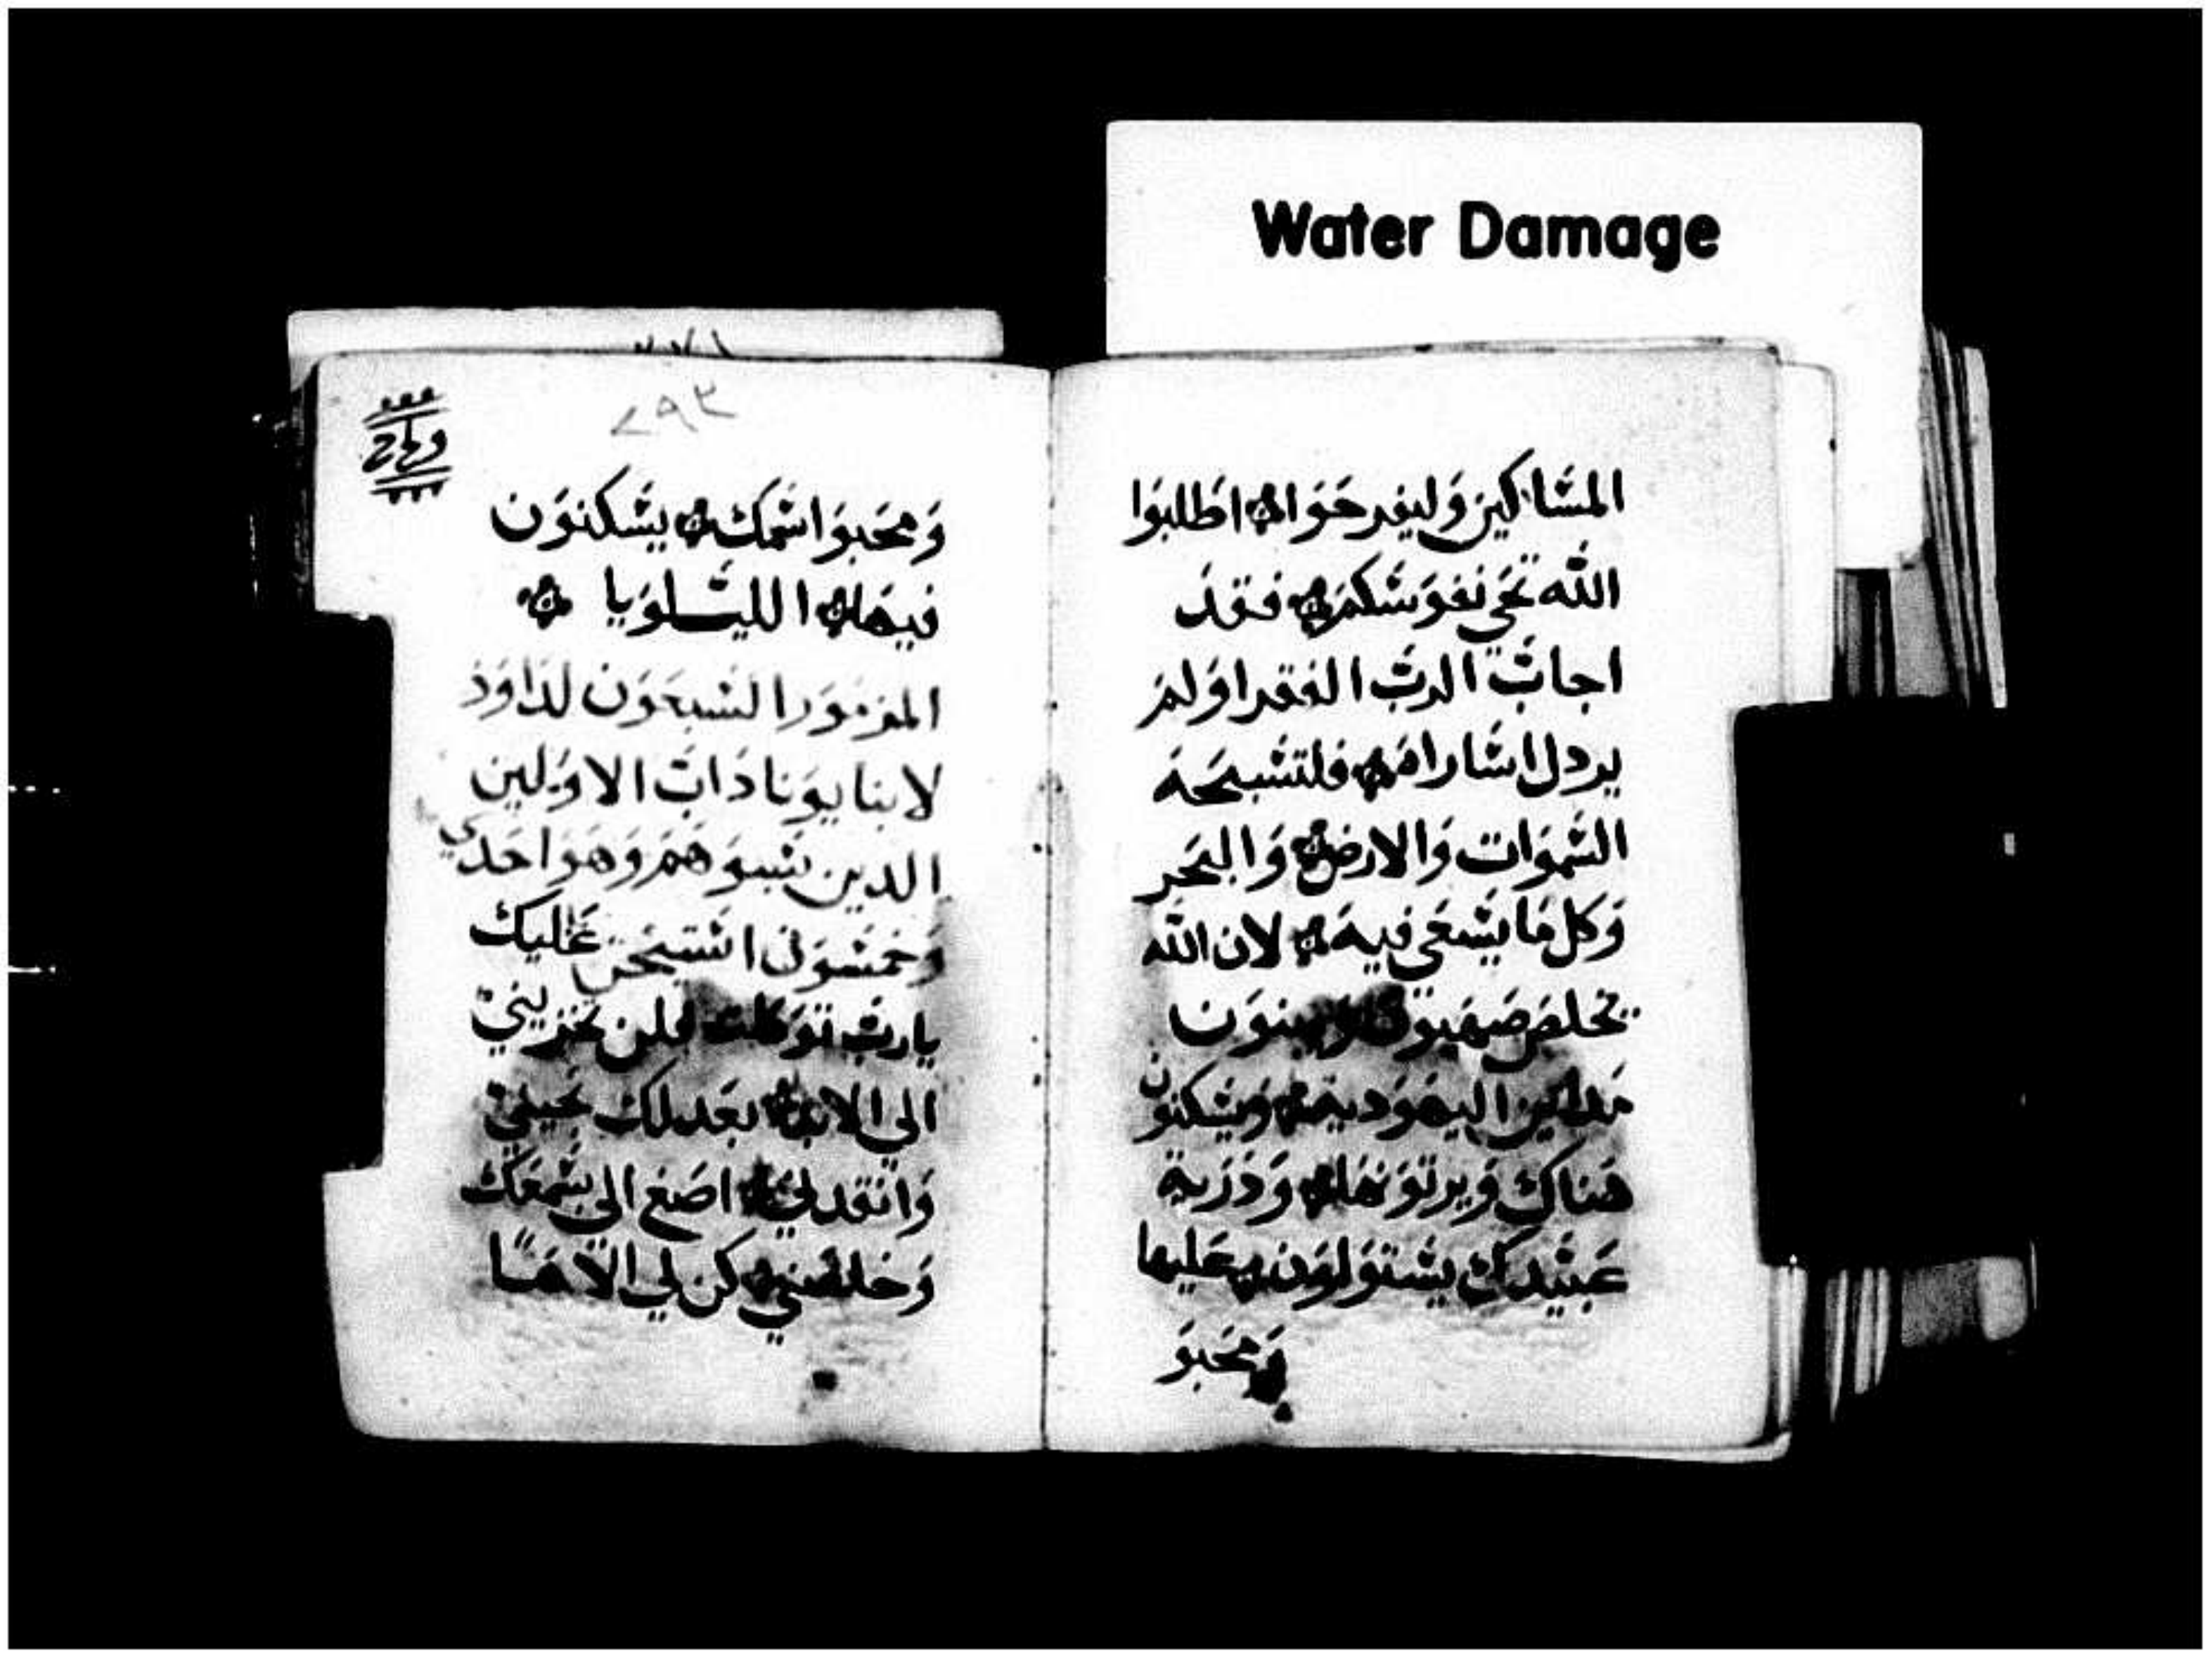 Water Damage
المساكين وليفرحوا اطلبوا
الله تحي نفوسكم فقد
اجاب الرب الفقرا ولم
يردل اساراه فلتسبحه
السموات والارض والبحر
وكل ما يسعى فيه لان الله
يخلص صهيون ويبنون
مداين اليهودية ويسكنون
هناك ويرتونها ودرية
عبيدك يستولون عليها
ومحبو
٢٩٣
ومحبوا اسمك يسكنون
فيها الليلويا
المزمور السبعون لداود
لابنا يوناداب الاولين
الدين سبوهم وهو احدي
وخمسون استيخن عليك
يارب توكلت فلن تخزيني
الي الابد بعدلك نجيني
وانقدني اصغ الي بسمعك
وخلصني كن لي الاها